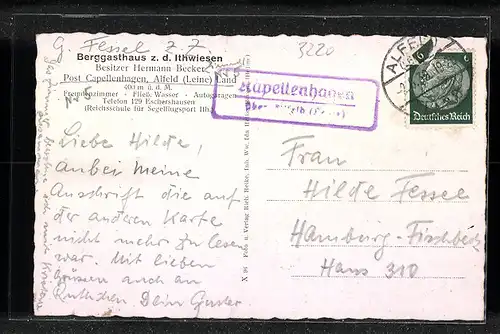 G. Fessel z. Z.
3220
Berggasthaus z. d. Ithwiesen
Besitzer Hermann Becker
Post Capellenhagen, Alfeld (Leine) Land
400 m ü. d. M.
Fremdenzimmer · Fließ. Wasser · Autogaragen
Telefon 129 Eschershausen
(Reichsschule für Segelflugsport Ith)
Capellenhagen
über Alfeld (Leine)
ALFELD
Deutsches Reich
Liebe Hilde,
anbei meine
Anschrift die auf
der anderen Karte
nicht mehr zu lesen
war. Mit lieben
Grüssen auch an
Ruthchen Dein Gustav
Frau
Hilde Fessel
Hamburg-Fischbeck
Haus 310
Foto u. Verlag